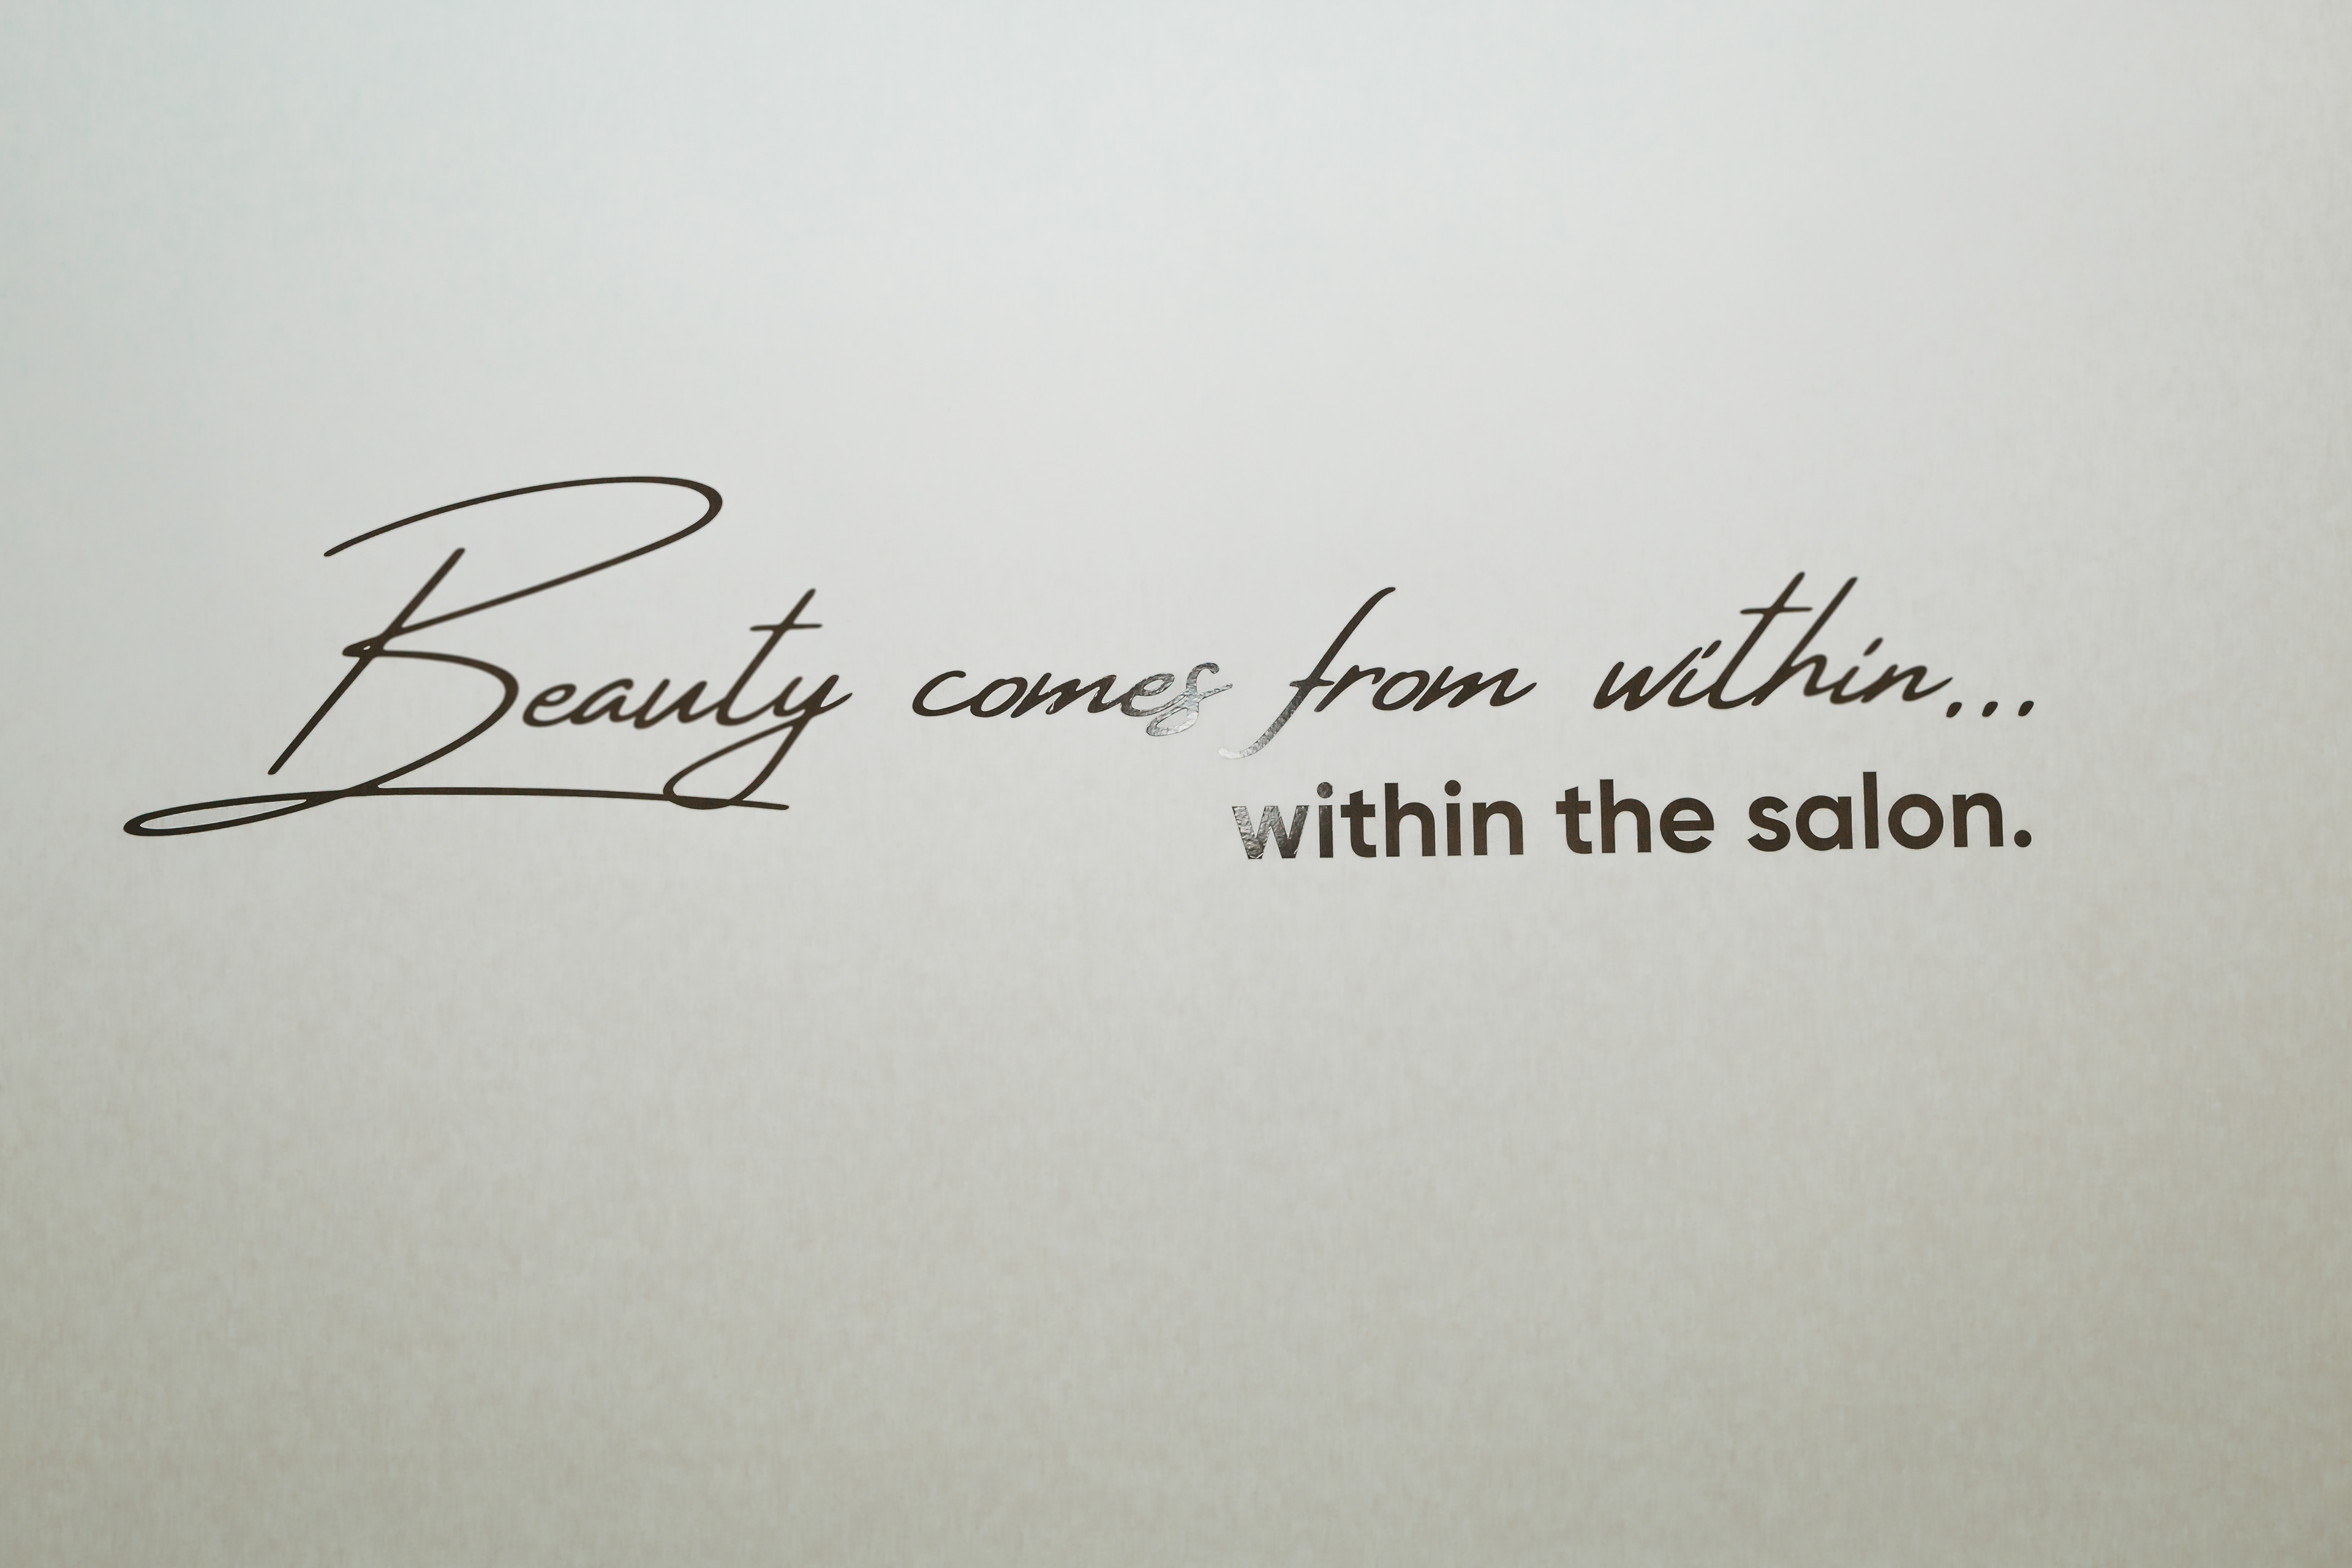 Beauty comes from within...
within the salon.